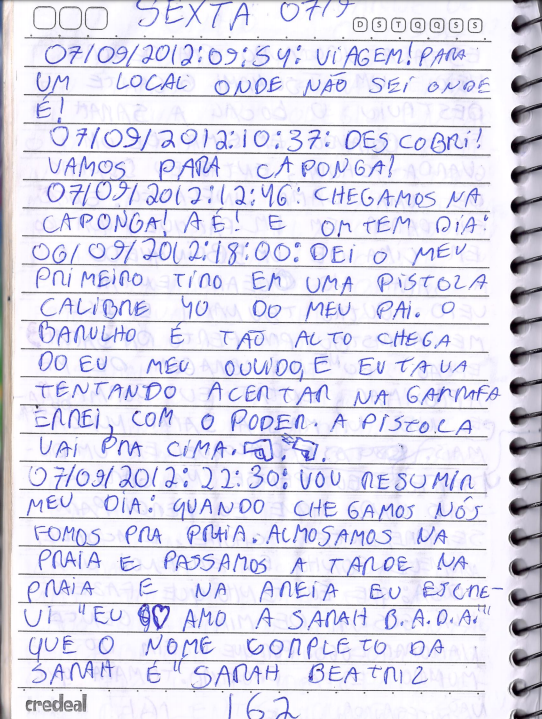 SEXTA 07/9
D S T Q Q S S
07/09/2012:09:54: VIAGEM! PARA
UM LOCAL ONDE NÃO SEI ONDE
É!
07/09/2012:10:37: DESCOBRI!
VAMOS PARA CAPONGA!
07/09/2012:12:46: CHEGAMOS NA
CAPONGA! AÉ! E ONTEM DIA:
06/09/2012:18:00: DEI O MEU
PRIMEIRO TIRO EM UMA PISTOLA
CALIBRE 40 DO MEU PAI. O
BARULHO É TÃO ALTO CHEGA
DOEU MEU OUVIDO, E EU TAVA
TENTANDO ACERTAR NA GARRAFA
ERREI, COM O PODER. A PISTOLA
VAI PRA CIMA.
07/09/2012: 22:30: VOU RESUMIR
MEU DIA: QUANDO CHEGAMOS NÓS
FOMOS PRA PRAIA. ALMOSAMOS NA
PRAIA E PASSAMOS A TARDE NA
PRAIA E NA AREIA EU ESCRE-
VI "EU AMO A SARAH B.A.D.A."
QUE O NOME COMPLETO DA
SARAH É "SARAH BEATRIZ
credeal
162